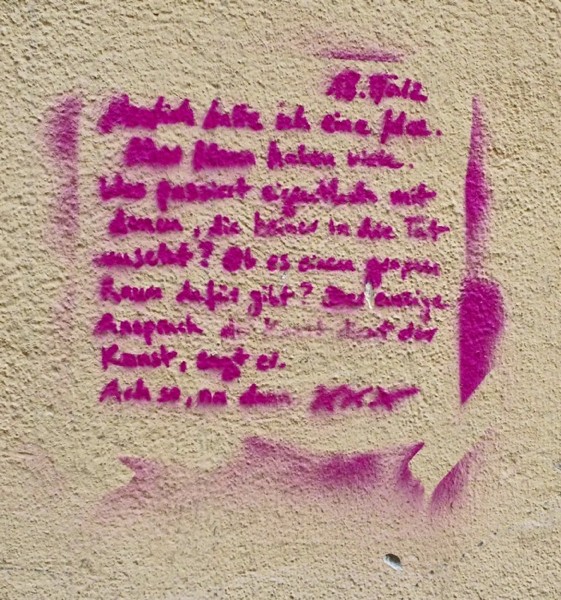 18. März
Neulich hatte ich eine Idee.
Aber Ideen haben viele.
Was passiert eigentlich mit
denen, die keiner in die Tat
umsetzt? Ob es einen ganzen
Raum dafür gibt? Der einzige
Anspruch der Kunst ist der
Kunst, sagt er.
Ach so, na dann